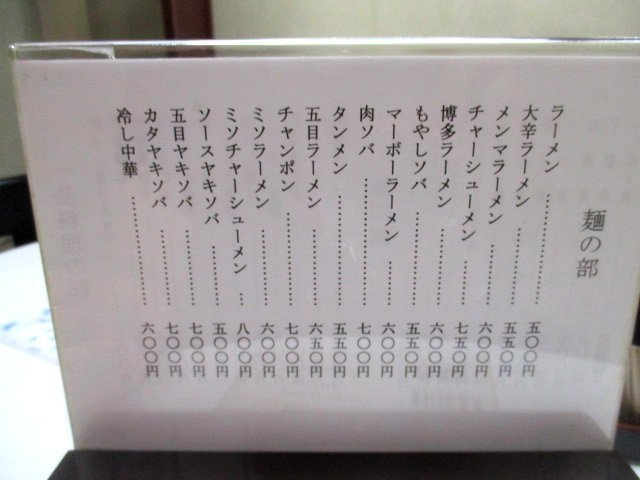 麺の部
ラーメン……………………五〇〇円
大辛ラーメン………………五五〇円
メンマラーメン……………六〇〇円
チャーシューメン…………七五〇円
博多ラーメン………………六〇〇円
もやしソバ…………………五五〇円
マーボーラーメン…………六〇〇円
肉ソバ………………………七〇〇円
タンメン……………………五五〇円
五目ラーメン………………六五〇円
チャンポン…………………七〇〇円
ミソラーメン………………六〇〇円
ミソチャーシューメン…八〇〇円
ソースヤキソバ……………五〇〇円
五目ヤキソバ………………七〇〇円
カタヤキソバ………………七〇〇円
冷し中華……………………六〇〇円